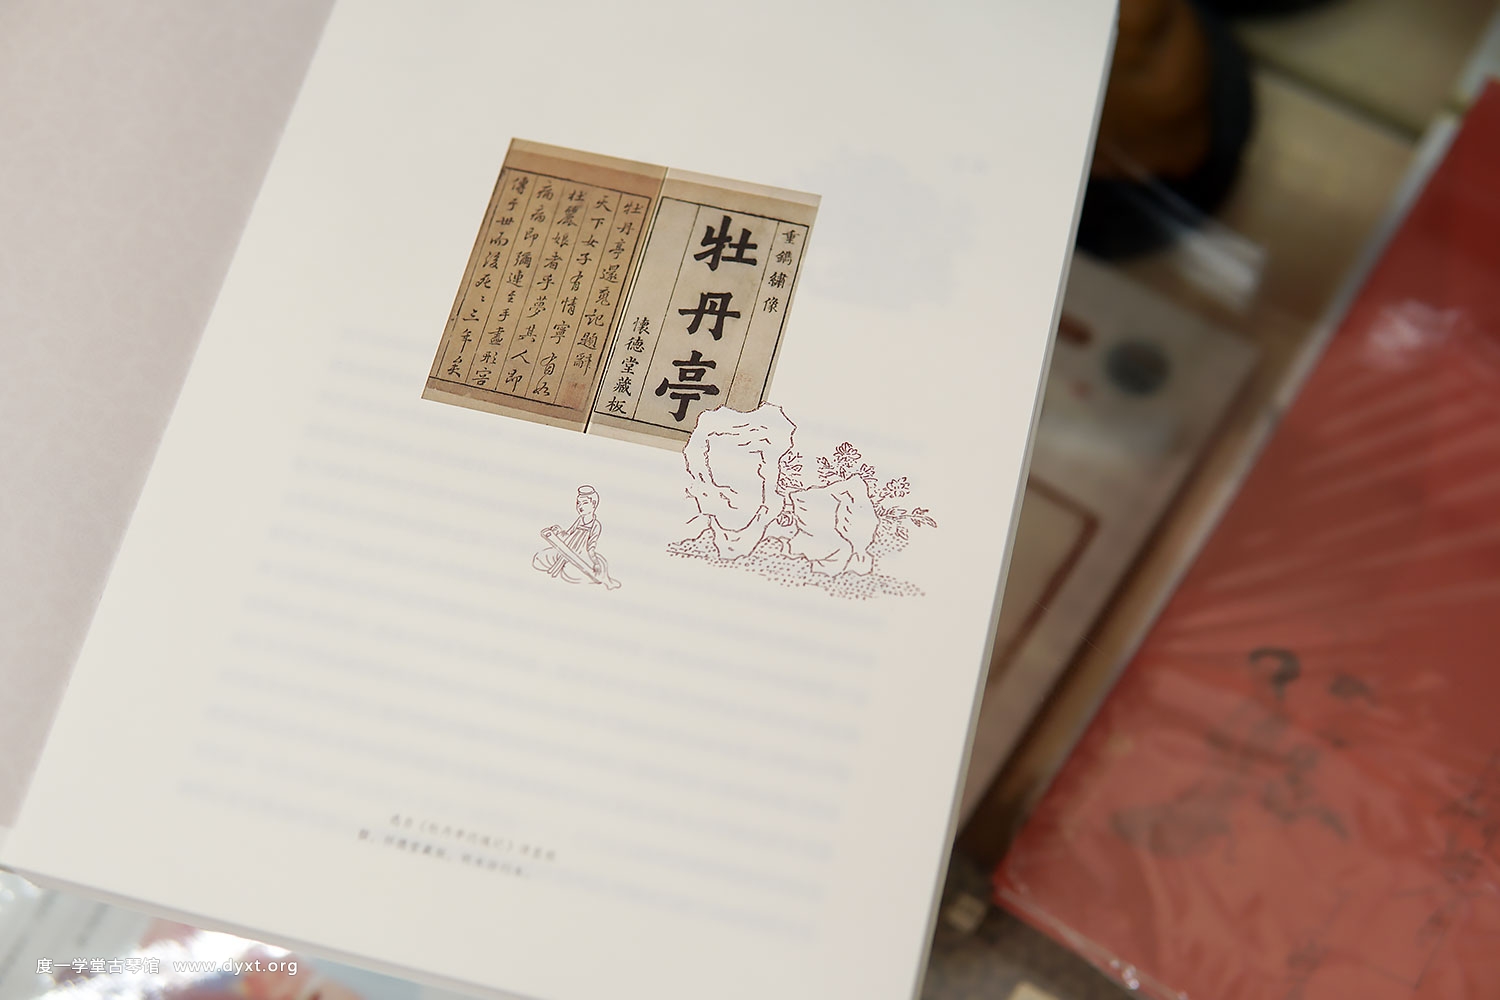 重鐫繡像
牡丹亭
懐德堂藏板
牡丹亭還魂記題辭
天下女子有情寧有如
杜麗娘者乎夢其人即
病病即彌連至手畫形容
傳于世而後死死三年矣
度一学堂古琴馆 www.dyxt.org